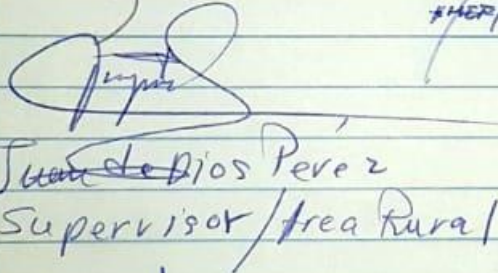 Juan de Dios Pérez
Supervisor/Area Rural